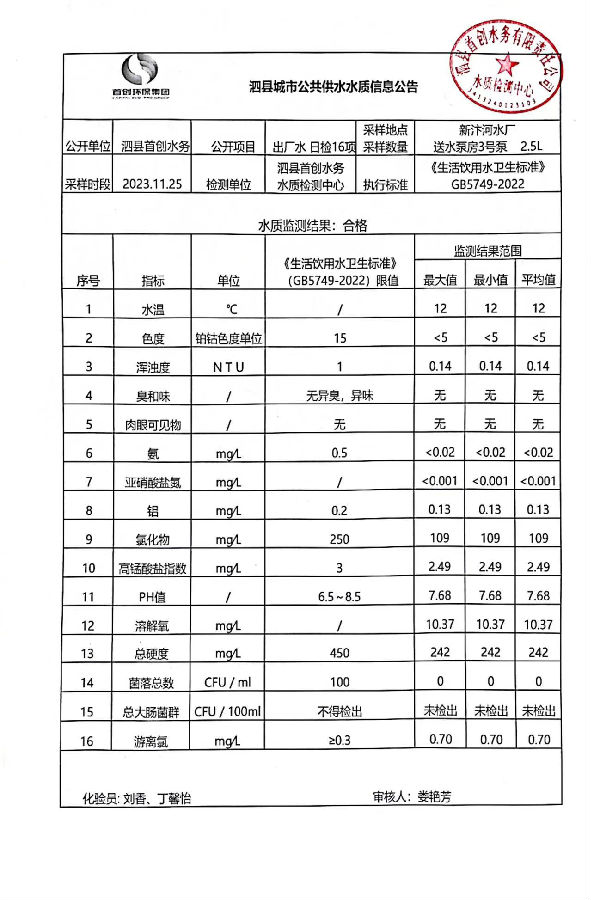 首创环保集团
泗县城市公共供水水质信息公告
泗县首创水务有限责任公司
水质检测中心
公开单位 泗县首创水务 公开项目 出厂水 日检16项 采样地点 采样数量 新汴河水厂 送水泵房3号泵 2.5L
采样时段 2023.11.25 检测单位 泗县首创水务 水质检测中心 执行标准 《生活饮用水卫生标准》 GB5749-2022
水质监测结果：合格
序号 指标 单位 《生活饮用水卫生标准》 （GB5749-2022）限值 监测结果范围 最大值 最小值 平均值
1 水温 ℃ / 12 12 12
2 色度 铂钴色度单位 15 <5 <5 <5
3 浑浊度 N T U 1 0.14 0.14 0.14
4 臭和味 / 无异臭，异味 无 无 无
5 肉眼可见物 / 无 无 无 无
6 氨 mg/L 0.5 <0.02 <0.02 <0.02
7 亚硝酸盐氮 mg/L / <0.001 <0.001 <0.001
8 铝 mg/L 0.2 0.13 0.13 0.13
9 氯化物 mg/L 250 109 109 109
10 高锰酸盐指数 mg/L 3 2.49 2.49 2.49
11 PH值 / 6.5～8.5 7.68 7.68 7.68
12 溶解氧 mg/L / 10.37 10.37 10.37
13 总硬度 mg/L 450 242 242 242
14 菌落总数 CFU / ml 100 0 0 0
15 总大肠菌群 CFU / 100ml 不得检出 未检出 未检出 未检出
16 游离氯 mg/L ≥0.3 0.70 0.70 0.70
化验员: 刘香、丁馨怡 审核人：娄艳芳